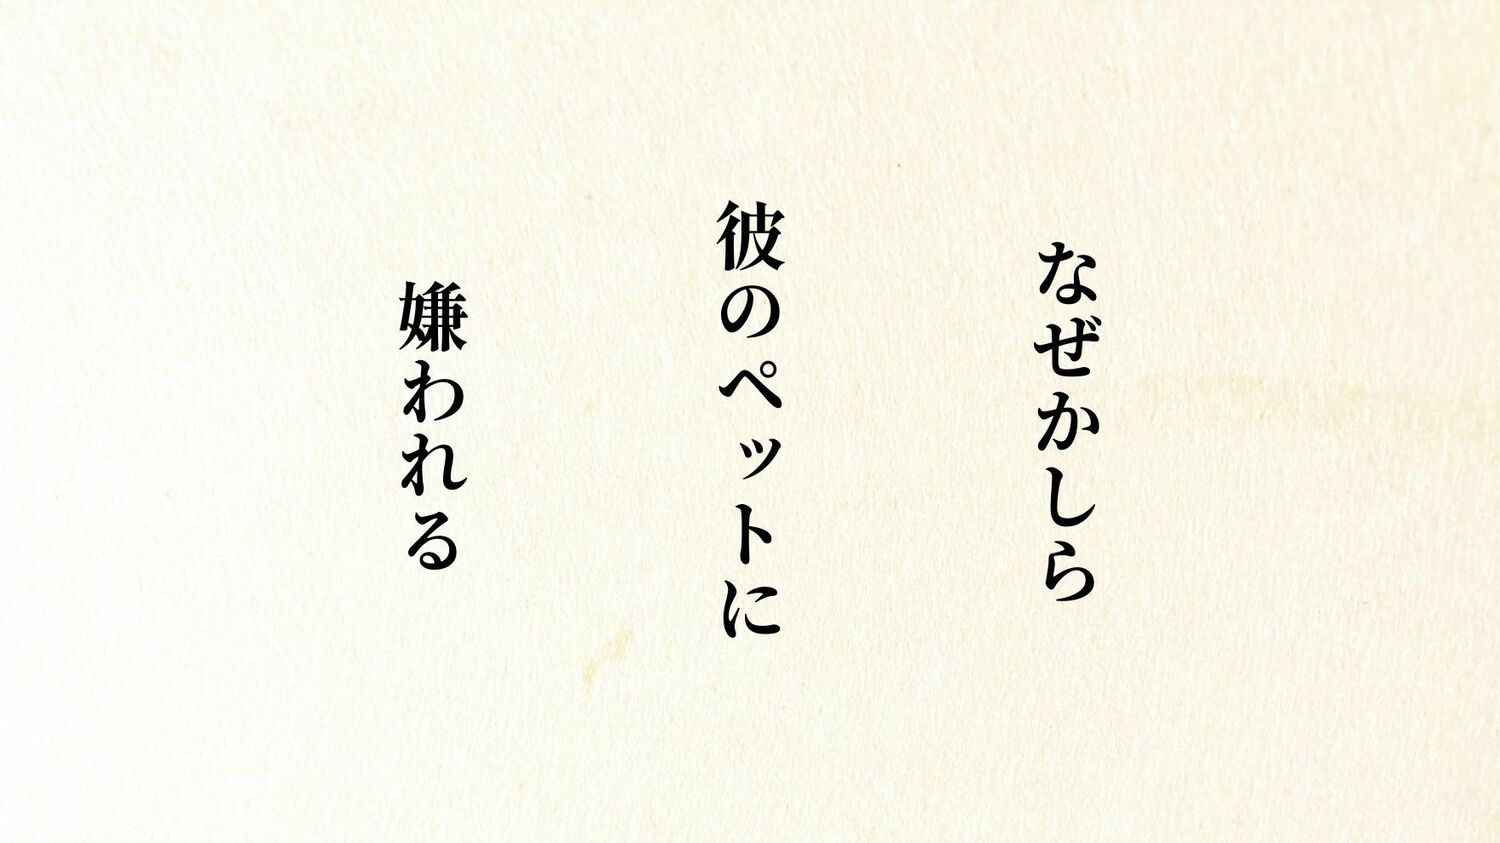 なぜかしら
彼のペットに
嫌われる